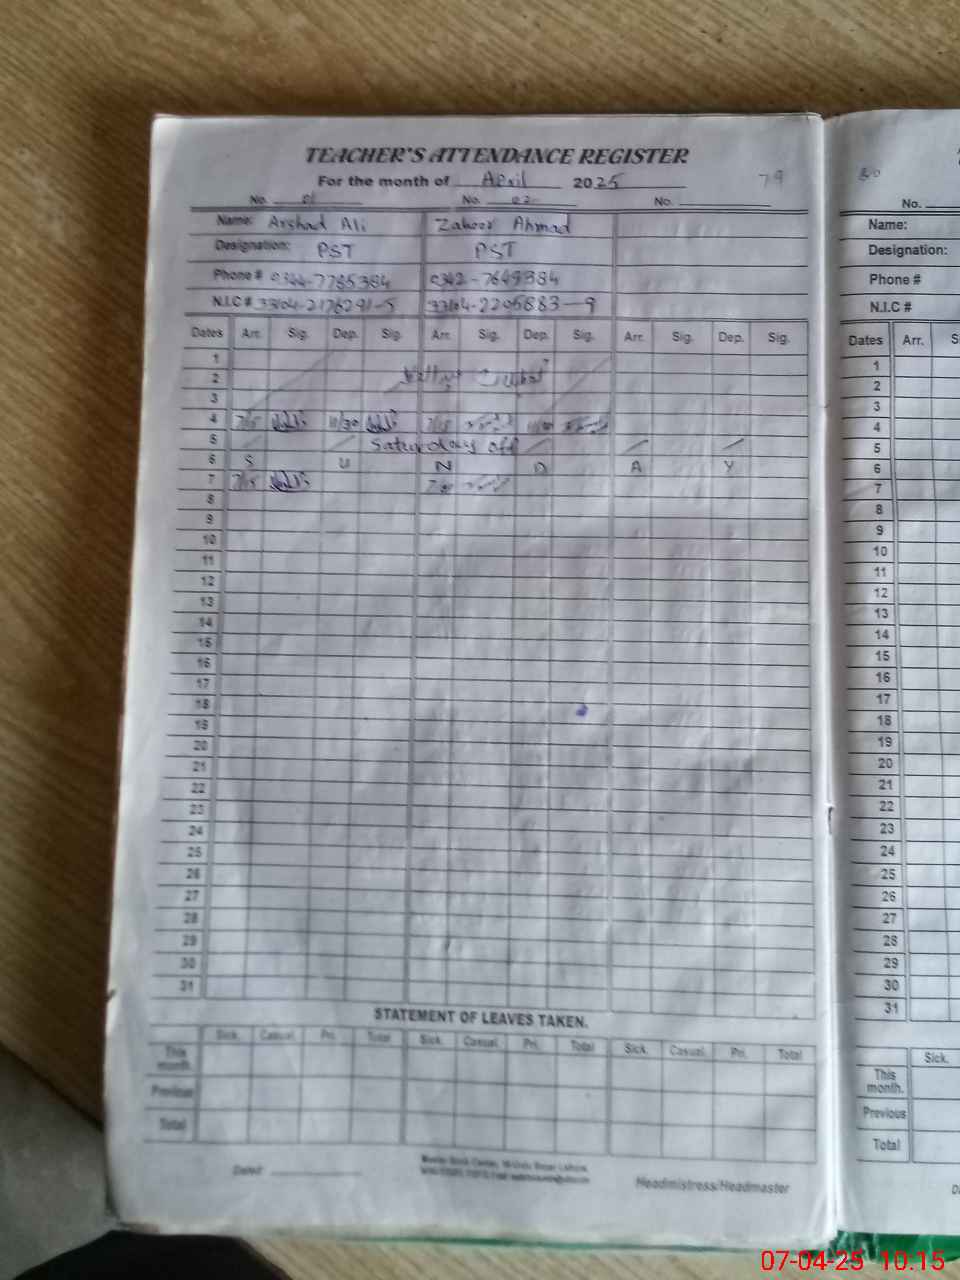 TEACHER'S ATTENDANCE REGISTER
For the month of April 2025 79
No. 01 No. 02 No.
Name: Arshad Ali Zahoor Ahmad
Designation: PST PST
Phone # 0344-7785384 0342-7649384
N.I.C # 33104-2176291-5 33104-2205883-9
Dates Arr. Sig. Dep. Sig. Arr. Sig. Dep. Sig. Arr. Sig. Dep. Sig.
1
2
3
4 7/15 11/30 7/15
5 Saturdays off
6 S U N D A Y
7 7/15
8
9
10
11
12
13
14
15
16
17
18
19
20
21
22
23
24
25
26
27
28
29
30
31
STATEMENT OF LEAVES TAKEN.
Sick. Casual. Pri. Total Sick. Casual. Pri. Total Sick. Casual. Pri. Total
This month.
Previous
Total
Dated
Headmistress/Headmaster
80
No.
Name:
Designation:
Phone #
N.I.C #
Dates Arr.
1
2
3
4
5
6
7
8
9
10
11
12
13
14
15
16
17
18
19
20
21
22
23
24
25
26
27
28
29
30
31
Sick.
This month.
Previous
Total
07-04-25 10.15